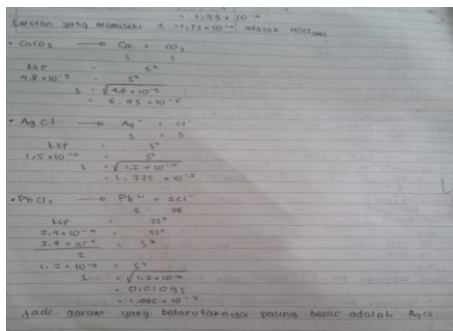 = 1,75 × 10⁻⁴
Larutan yang memiliki
adalah HOCl
• CaCO₃ → Ca + CO₃
s s
ksp = s²
4,8 × 10⁻⁹ = s²
s = √4,8 × 10⁻⁹
= 6,93 × 10⁻⁵
• AgCl → Ag⁺ + Cl⁻
s + s
ksp = s²
1,5 × 10⁻¹⁰ = s²
s = √1,5 × 10⁻¹⁰
= 1,225 × 10⁻⁵
• PbCl₂ → Pb²⁺ + 2Cl⁻
s 2s
ksp = 2s²
2,4 × 10⁻⁴ = 2s²
2,4 × 10⁻⁴ = s²
2
1,2 × 10⁻⁴ = s²
s = √1,2 × 10⁻⁴
= 0,01095
= 1,095 × 10⁻²
Jadi garam yang kelarutannya paling besar adalah AgCl